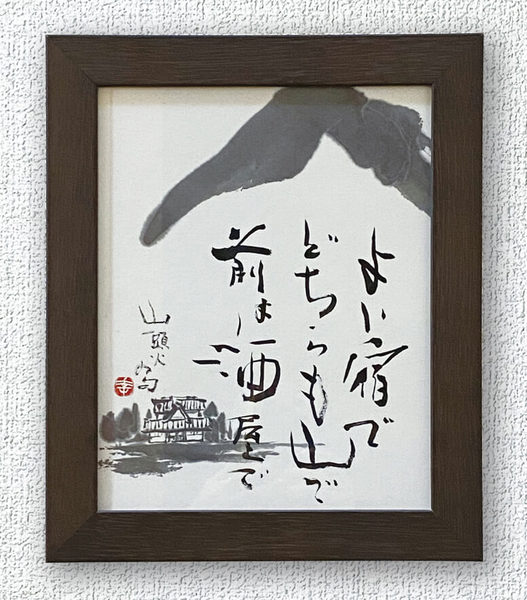 よい宿で
どちらも山で
前は酒屋で
山頭火